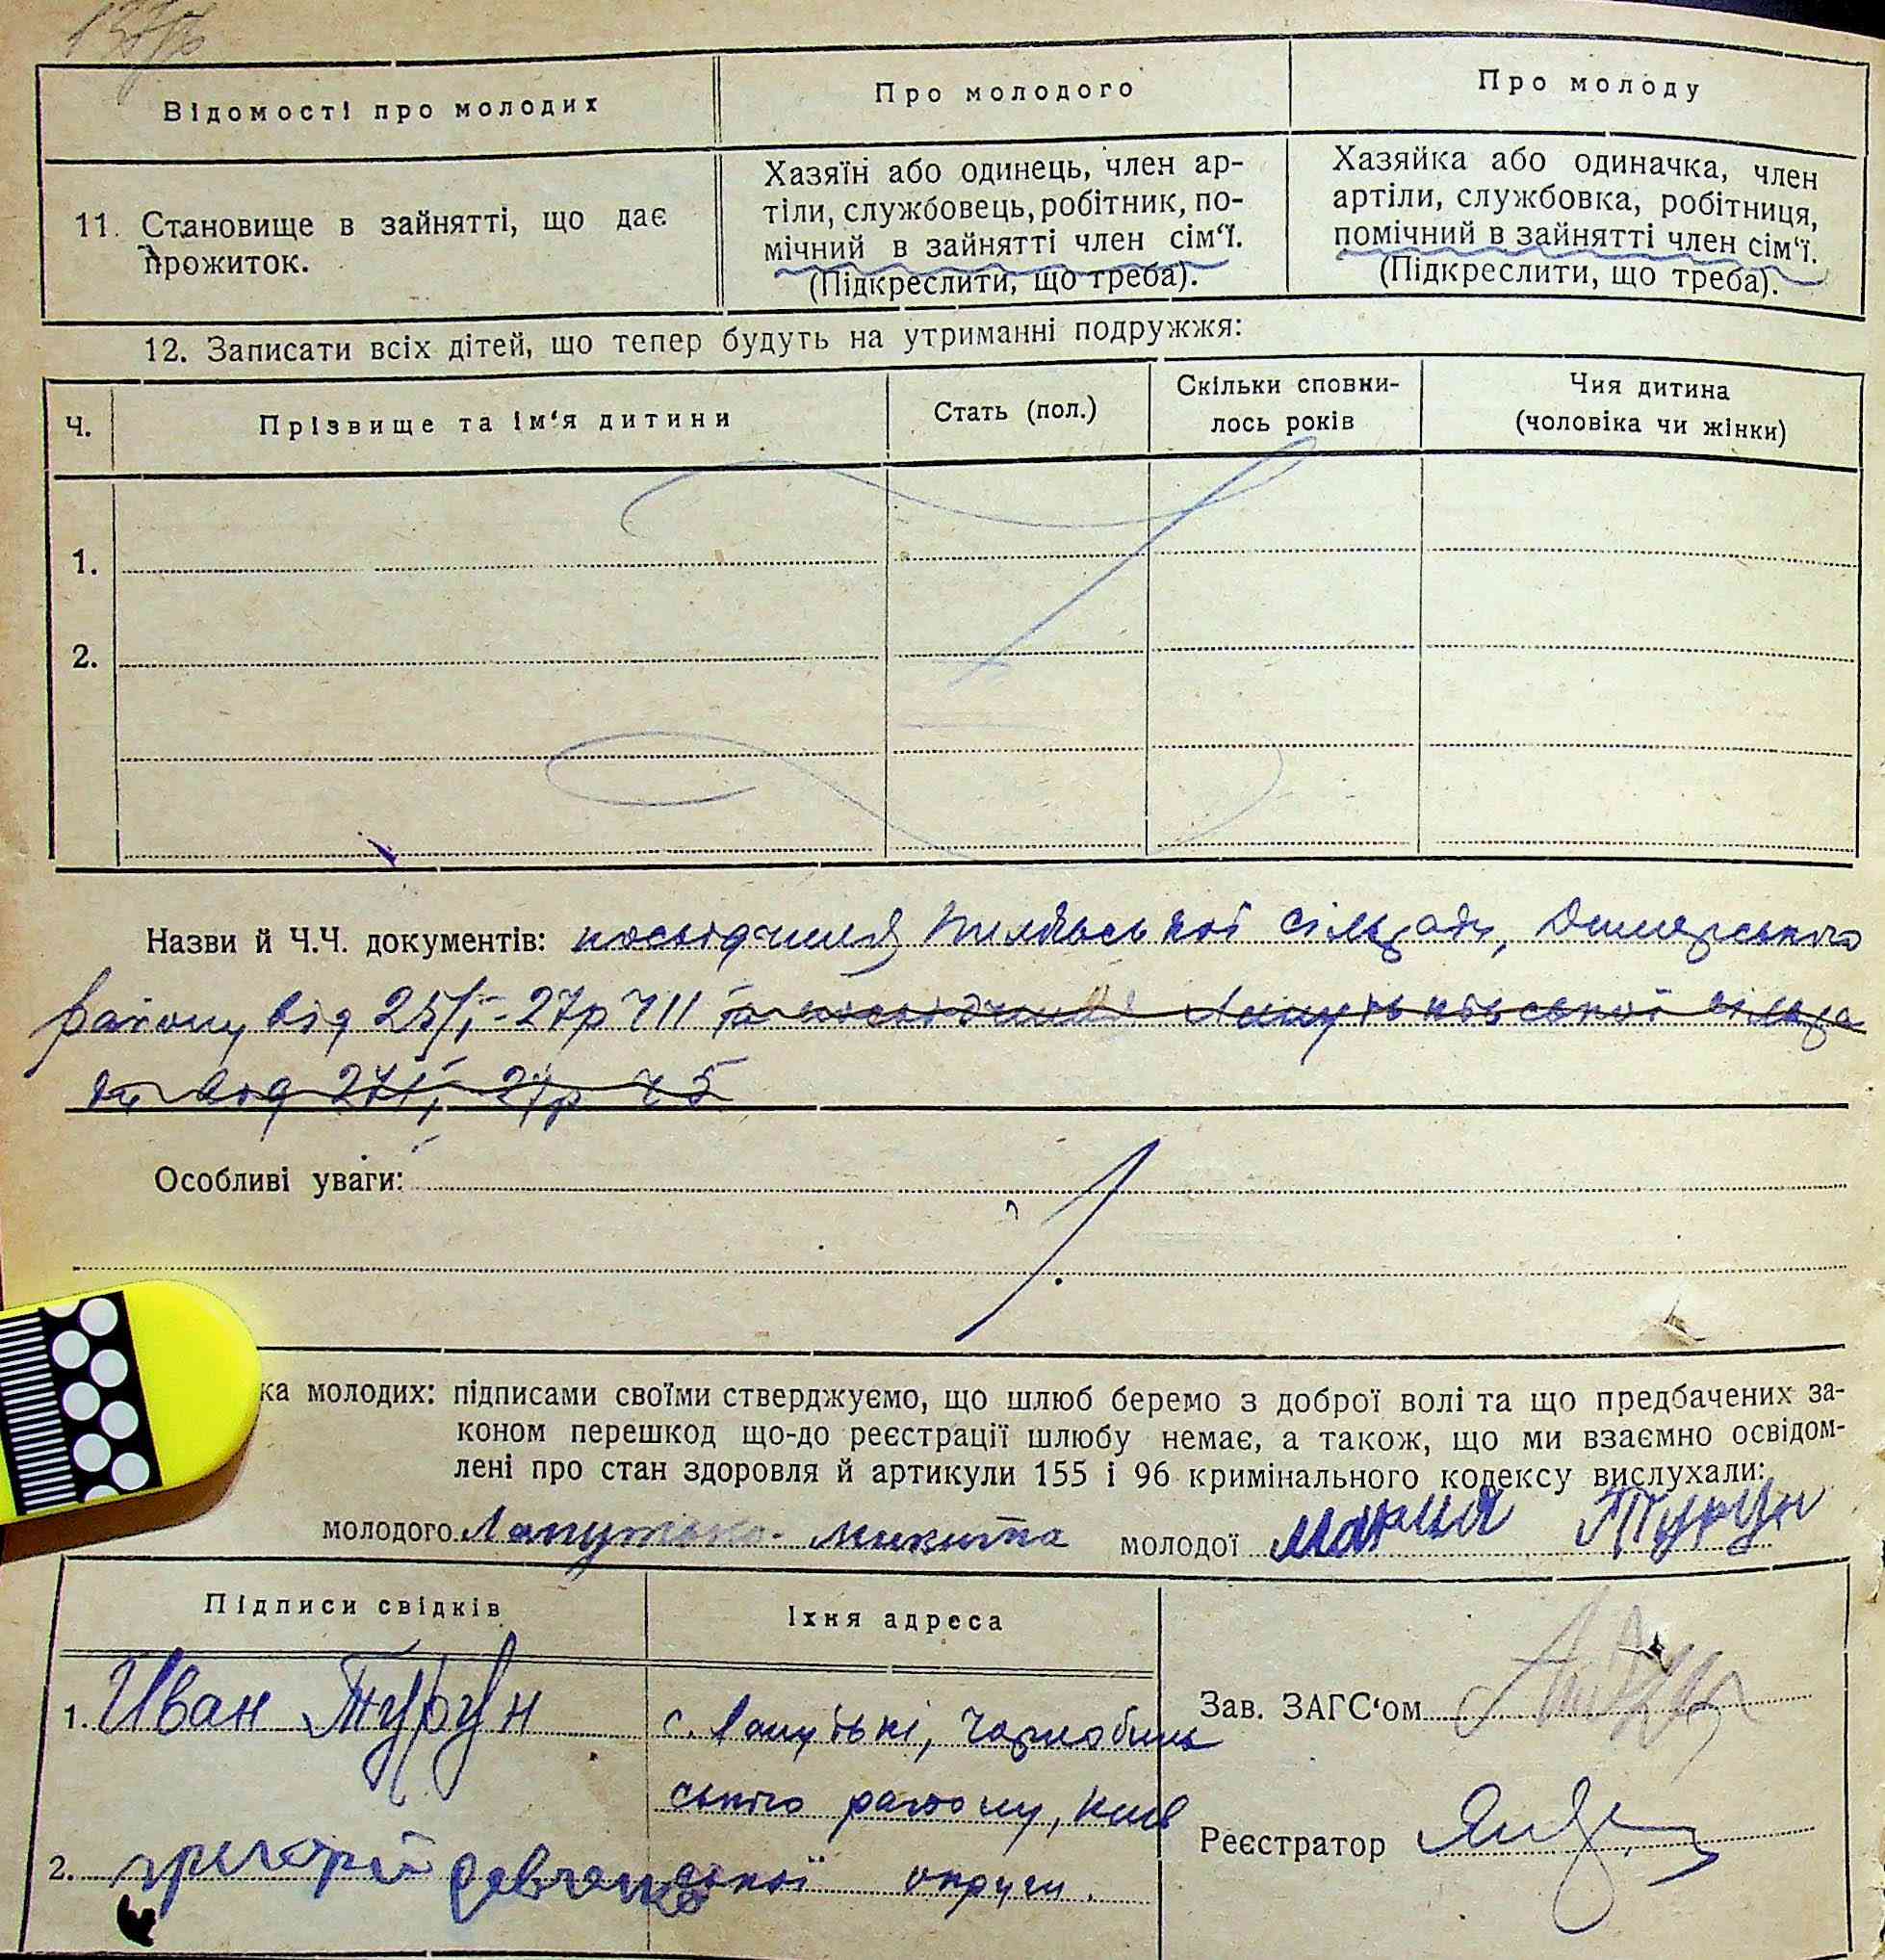 Відомості про молодих
Про молодого
Про молоду
11. Становище в зайнятті, що дає
прожиток.
Хазяїн або одинець, член ар-
тіли, службовець, робітник, по-
мічний в зайнятті член сім‘ї.
(Підкреслити, що треба).
Хазяйка або одиначка, член
артіли, службовка, робітниця,
помічний в зайнятті член сім‘ї.
(Підкреслити, що треба).
12. Записати всіх дітей, що тепер будуть на утриманні подружжя:
Ч.
Прізвище та ім‘я дитини
Стать (пол.)
Скільки сповни-
лось років
Чия дитина
(чоловіка чи жінки)
1.
2.
Назви й Ч.Ч. документів: посвідчення сільради, Димерського
району від 25/І-27р Ч11 та посвідчення Лапутьківської сільра
ди від 27/І-27р Ч5
Особливі уваги:
ка молодих: підписами своїми стверджуємо, що шлюб беремо з доброї волі та що предбачених за-
коном перешкод що-до реєстрації шлюбу немає, а також, що ми взаємно освідом-
лені про стан здоровля й артикули 155 і 96 кримінального кодексу вислухали:
молодого Лапутько Микита молодої Мария Турун
Підписи свідків
Іхня адреса
1. Иван Турун
с. Лапутькі, Чорнобиль
ського району, Київ
2. Григорій Савченко
ської округи.
Зав. ЗАГС‘ом
Реєстратор